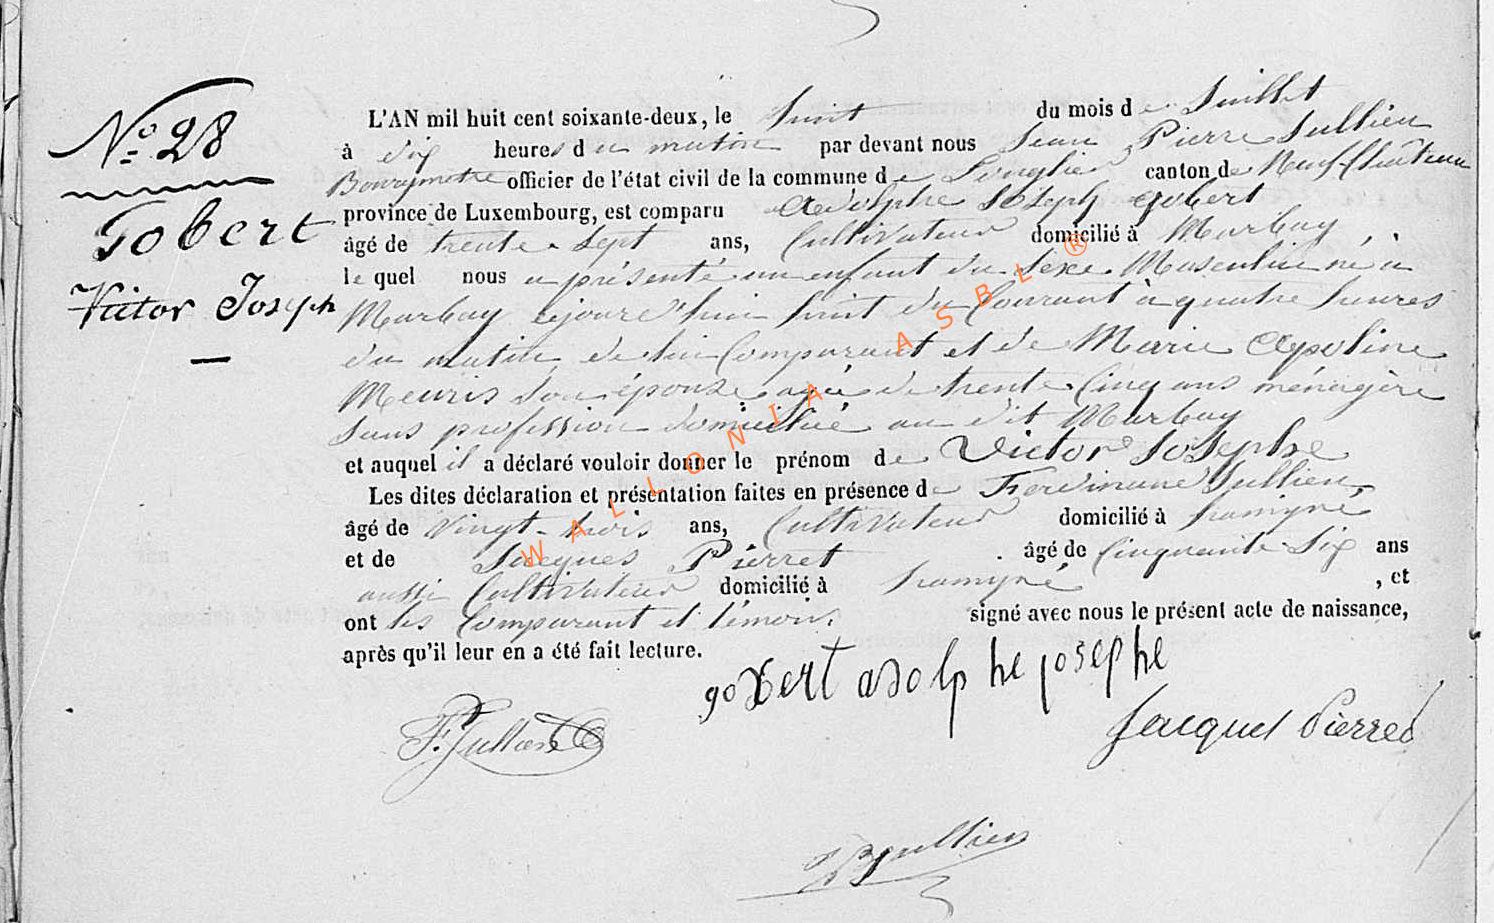 N° 28
Gobert
Victor Joseph
L'AN mil huit cent soixante-deux, le huit du mois de Juillet
à dix heures du matin par devant nous Jean Pierre Jullien
Bourgmetre officier de l'état civil de la commune de Longlier canton de Neufchâteau
province de Luxembourg, est comparu Adolphe Joseph gobert
âgé de trente-sept ans, Cultivateur domicilié à Marbay
le quel nous a présenté un enfant du sexe Masculin né à
Marbay cejourd'hui huit du Courant à quatre heures
du matin, de lui Comparant et de Marie Apoline
Meuris son épouse agée de trente Cinq ans ménagère
sans profession domiciliée au dit Marbay
et auquel il a déclaré vouloir donner le prénom de Victor Josephe
Les dites déclaration et présentation faites en présence de Ferdinand Jullien
âgé de vingt-trois ans, Cultivateur domicilié à
et de Jacques Pierret âgé de Cinquante-Six ans
aussi Cultivateur domicilié à , et
ont les Comparant et témoins signé avec nous le présent acte de naissance,
après qu'il leur en a été fait lecture.
gobert adolphe josephe
F. Jullien
Jacques Pierret
Jullien
WALLONIA ASBL ®